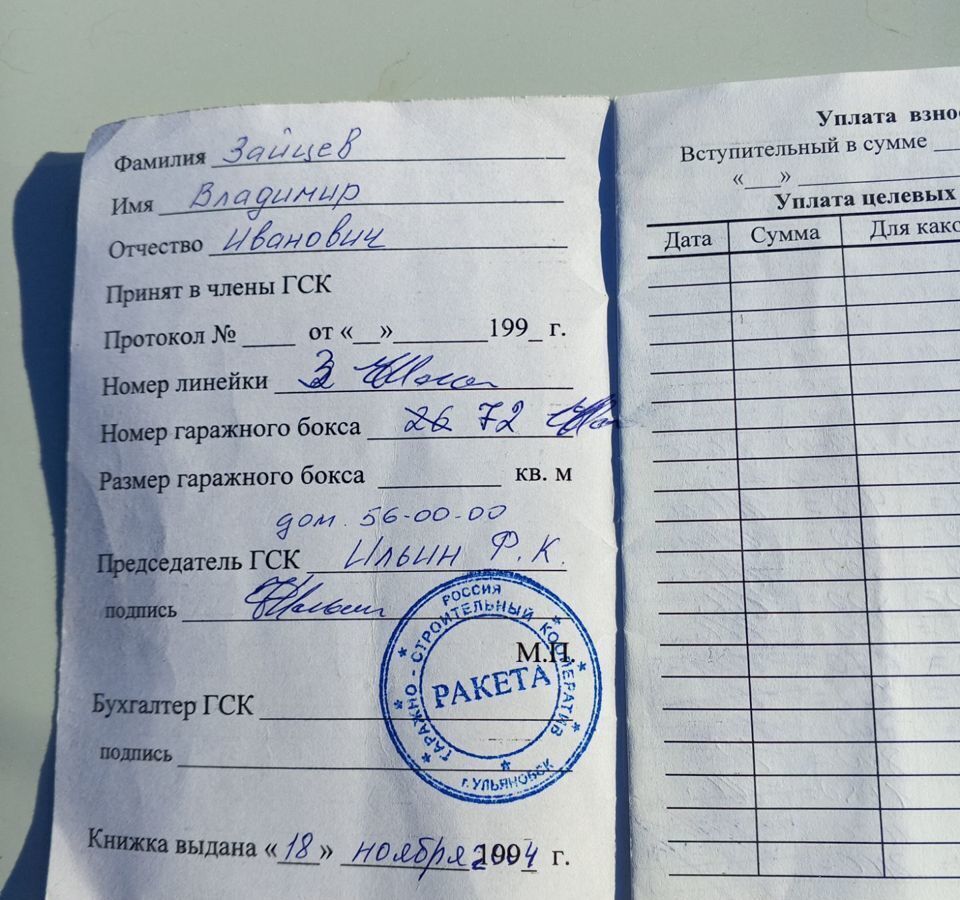 Фамилия Зайцев
Имя Владимир
Отчество Иванович
Принят в члены ГСК
Протокол № ____ от «__» _______ 199_ г.
Номер линейки 3
Номер гаражного бокса 26 72
Размер гаражного бокса _________ кв. м
дом. 56-00-00
Председатель ГСК Ильин Ф.К.
подпись
РОССИЯ
ГАРАЖНО-СТРОИТЕЛЬНЫЙ КООПЕРАТИВ
РАКЕТА
г. УЛЬЯНОВСК
М.П.
Бухгалтер ГСК
подпись
Книжка выдана «18» ноября 2004 г.
Уплата взно
Вступительный в сумме
«___»
Уплата целевых
Дата Сумма Для како